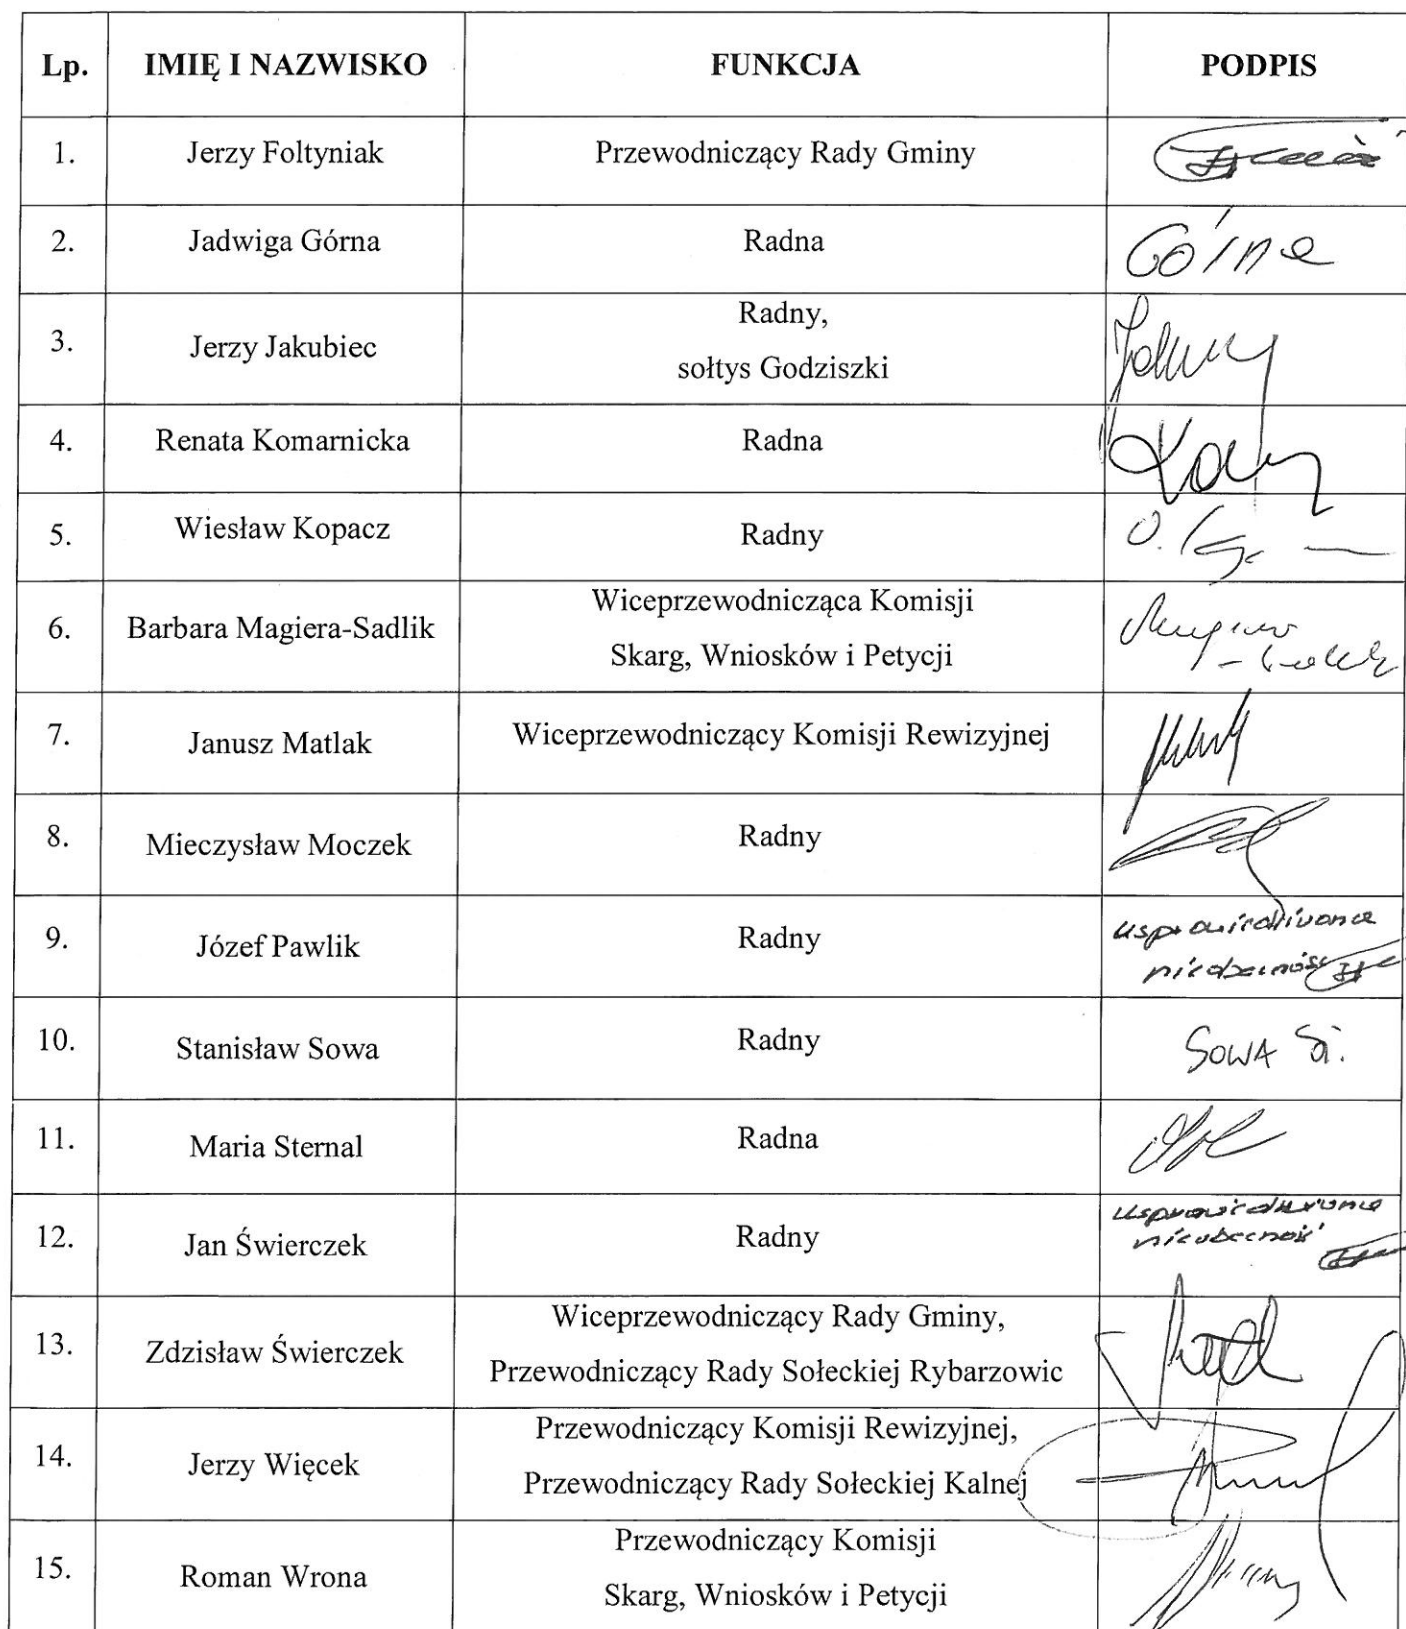 Lp. IMIĘ I NAZWISKO FUNKCJA PODPIS
1. Jerzy Foltyniak Przewodniczący Rady Gminy
2. Jadwiga Górna Radna Górna
3. Jerzy Jakubiec Radny,
sołtys Godziszki
4. Renata Komarnicka Radna
5. Wiesław Kopacz Radny
6. Barbara Magiera-Sadlik Wiceprzewodnicząca Komisji
Skarg, Wniosków i Petycji
7. Janusz Matlak Wiceprzewodniczący Komisji Rewizyjnej
8. Mieczysław Moczek Radny
9. Józef Pawlik Radny usprawiedliwiona
nieobecność
10. Stanisław Sowa Radny SOWA St.
11. Maria Sternal Radna
12. Jan Świerczek Radny usprawiedliwiona
nieobecność
13. Zdzisław Świerczek Wiceprzewodniczący Rady Gminy,
Przewodniczący Rady Sołeckiej Rybarzowic
14. Jerzy Więcek Przewodniczący Komisji Rewizyjnej,
Przewodniczący Rady Sołeckiej Kalnej
15. Roman Wrona Przewodniczący Komisji
Skarg, Wniosków i Petycji